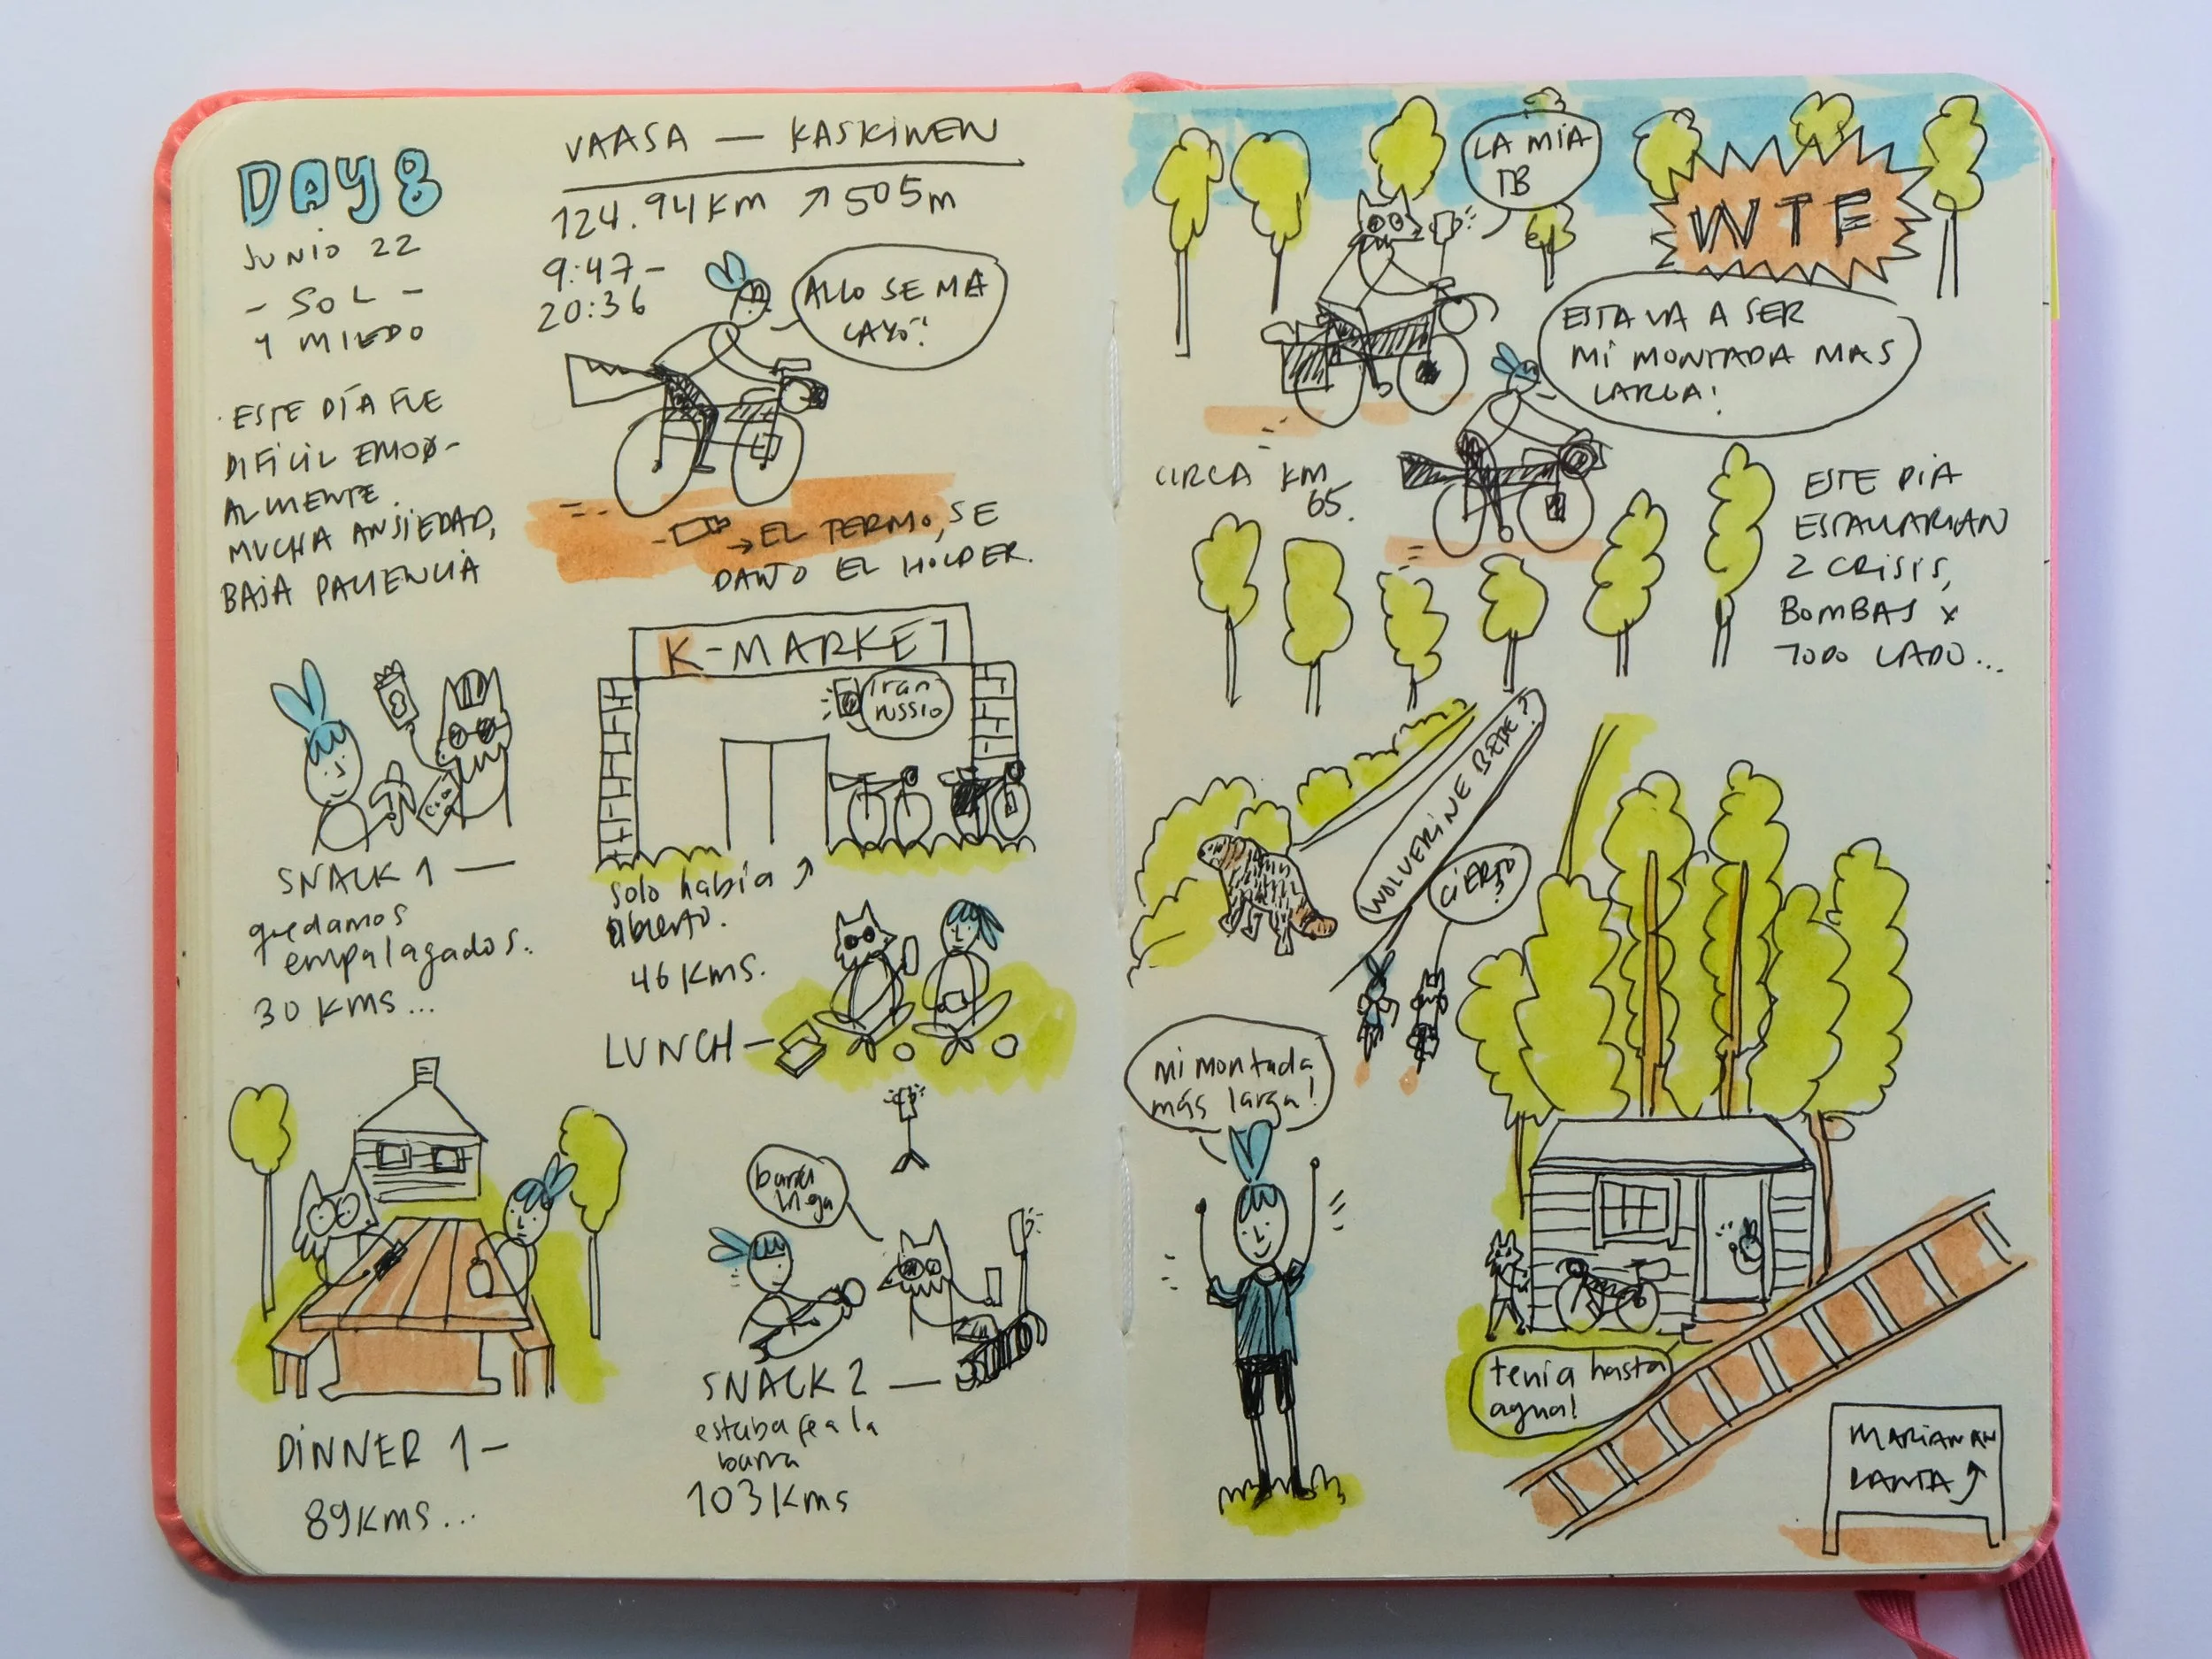 DAY 8
JUNIO 22
- SOL -
Y MIEDO
VAASA — KASKINEN
124.94KM ↗505m
9:47-
20:36
ALGO SE ME
CAYÓ!!
· ESTE DÍA FUE
DIFICIL EMO
ALMENTE.
MUCHA ANSIEDAD,
BAJA PACIENCIA
→ EL TERMO, SE
DAÑO EL HOLDER.
SNACK 1 —
quedamos
empalagados.
30 Kms...
K-MARKET
iran-
russio
Solo había ↗
abierto.
46 Kms.
LUNCH —
DINNER 1 —
89Kms...
SNACK 2 —
estaba fea la
barra
103Kms
LA MÍA
TB
WTF
ESTA VA A SER
MI MONTADA MAS
LARGA!
CIRCA KM
65.
ESTE DIA
ESTALLARIAN
2 CRISIS,
BOMBAS x
TODO LADO...
WOLVERINE BEBE?
CIERTO
mi montada
más larga!
tenía hasta
agua!
MARIANAN
RANTA ↗